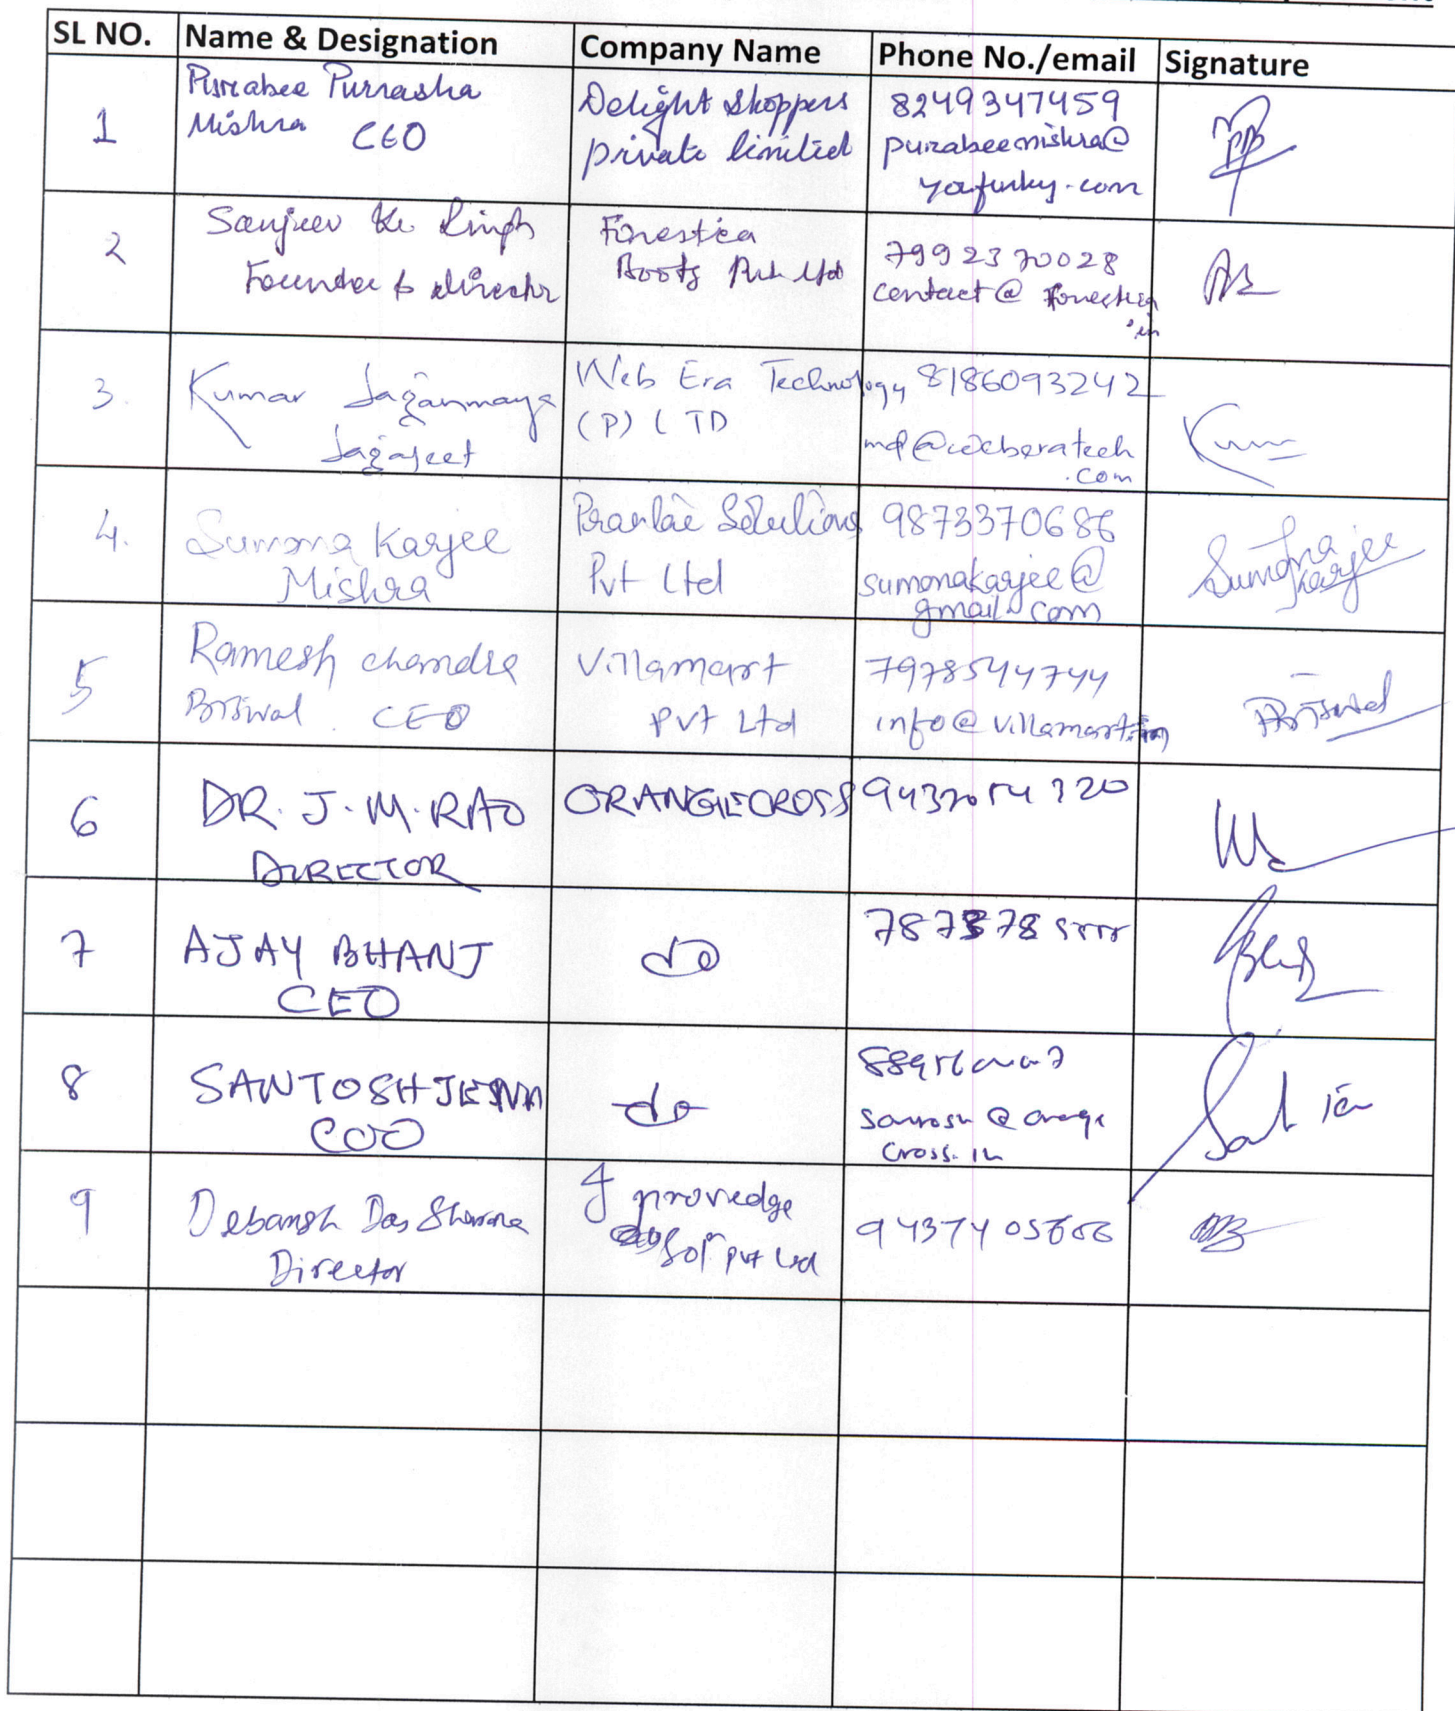 SL NO. Name & Designation Company Name Phone No./email Signature
1
Purabee Purrasha
Mishra CEO
Delight Shoppers
private limited
8249347459
purabeemishra@
yofunky.com
2
Sanjeev Kr Singh
Founder & director
Forestica
Roots Pvt Ltd
7992370028
contact@forestica
.in
3.
Kumar Jaganmaya
Jagajeet
Web Era Technology
(P) LTD
8186093242
md@weberatech
.com
4.
Sumona Karjee
Mishra
Solutions
Pvt Ltd
9873370686
sumonakarjee@
gmail.com
Sumona
Karjee
5
Ramesh chandra
Biswal CEO
Villamart
Pvt Ltd
7978544744
info@villamart.in
6
DR. J. M. RAO
DIRECTOR
ORANGECROSS
7
AJAY BHANJ
CEO
do
8
SANTOSH JENA
COO
do
santosh@orange
cross.in
9
Debansh Das Sharma
Director
provedge
Sol Pvt Ltd